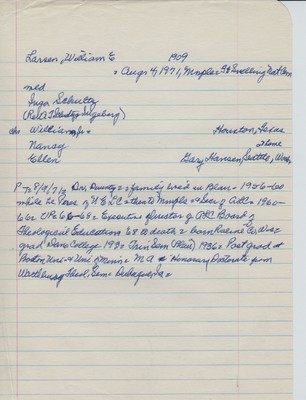 Larsen, William E 1909
= Aug 4, 1971, Mnpls = Ft Snelling Nat Cem
med
Inga Schultz
(Rel A J Schultz Ingeborg)
chn William Jr = Houston, Texas
Nancy at home
Ellen Gary Hansen, Seattle, Wash
P T 8/7/71 Drs, Dundy = family lived in Blair = 1956-60
while he Pres of UELC then to Mnpls = Secy of ALC = 1960-
66 = 66-68 = Executive director of ALC Board of
Theological Education '68 death = born Racine Wis =
grad Dana College 193 = Trin Sem (Blair) 1936 = Post grad at
Boston Uni & Uni of Minn = M A = Honorary Doctorate from
Wartburg Theol Sem = Dubuque, Ia =